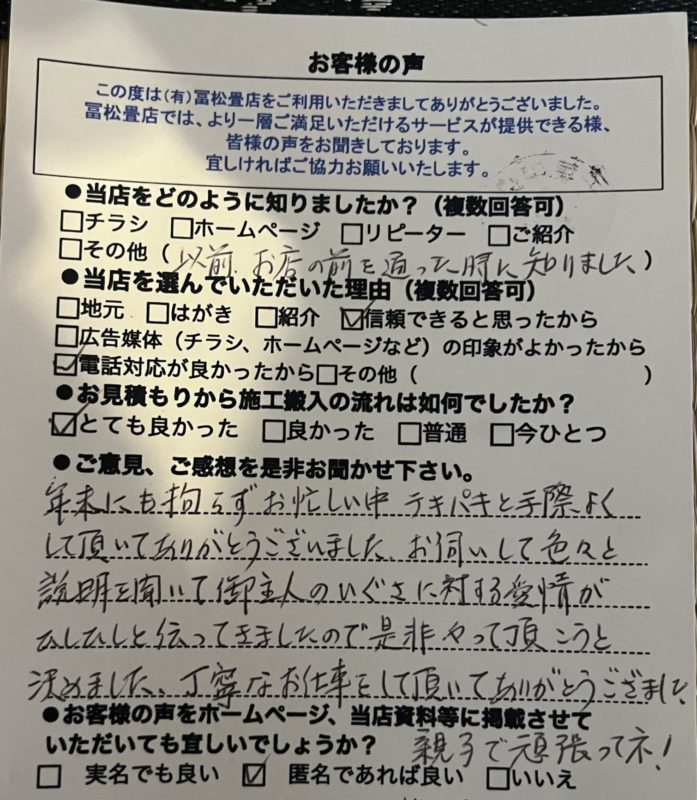 お客様の声
この度は(有)冨松畳店をご利用いただきましてありがとうございました。
冨松畳店では、より一層ご満足いただけるサービスが提供できる様、
皆様の声をお聞きしております。
宜しければご協力お願いいたします。
●当店をどのように知りましたか？（複数回答可）
□チラシ □ホームページ □リピーター □ご紹介
□その他（以前、お店の前を通った時に知りました）
●当店を選んでいただいた理由（複数回答可）
□地元 □はがき □紹介 ☑信頼できると思ったから
□広告媒体（チラシ、ホームページなど）の印象がよかったから
☑電話対応が良かったから□その他（ ）
●お見積もりから施工搬入の流れは如何でしたか？
☑とても良かった □良かった □普通 □今ひとつ
●ご意見、ご感想を是非お聞かせ下さい。
年末にも拘らずお忙しい中 テキパキと手際よく
して頂いてありがとうございました。お伺いして色々と
説明を聞いて御主人のいぐさに対する愛情が
ひしひしと伝ってきましたので是非やって頂こうと
決めました。丁寧なお仕事をして頂いてありがとうござました
●お客様の声をホームページ、当店資料等に掲載させて
いただいても宜しいでしょうか？ 親子で頑張ってネ！
□ 実名でも良い ☑ 匿名であれば良い □いいえ